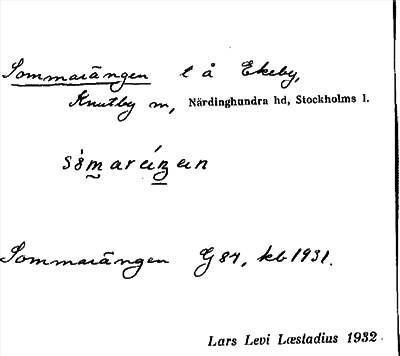 Sommarängen t å Ekeby,
Knutby sn, Närdinghundra hd, Stockholms l.
Sommarängen G 84, kb 1931.
Lars Levi Læstadius 1932